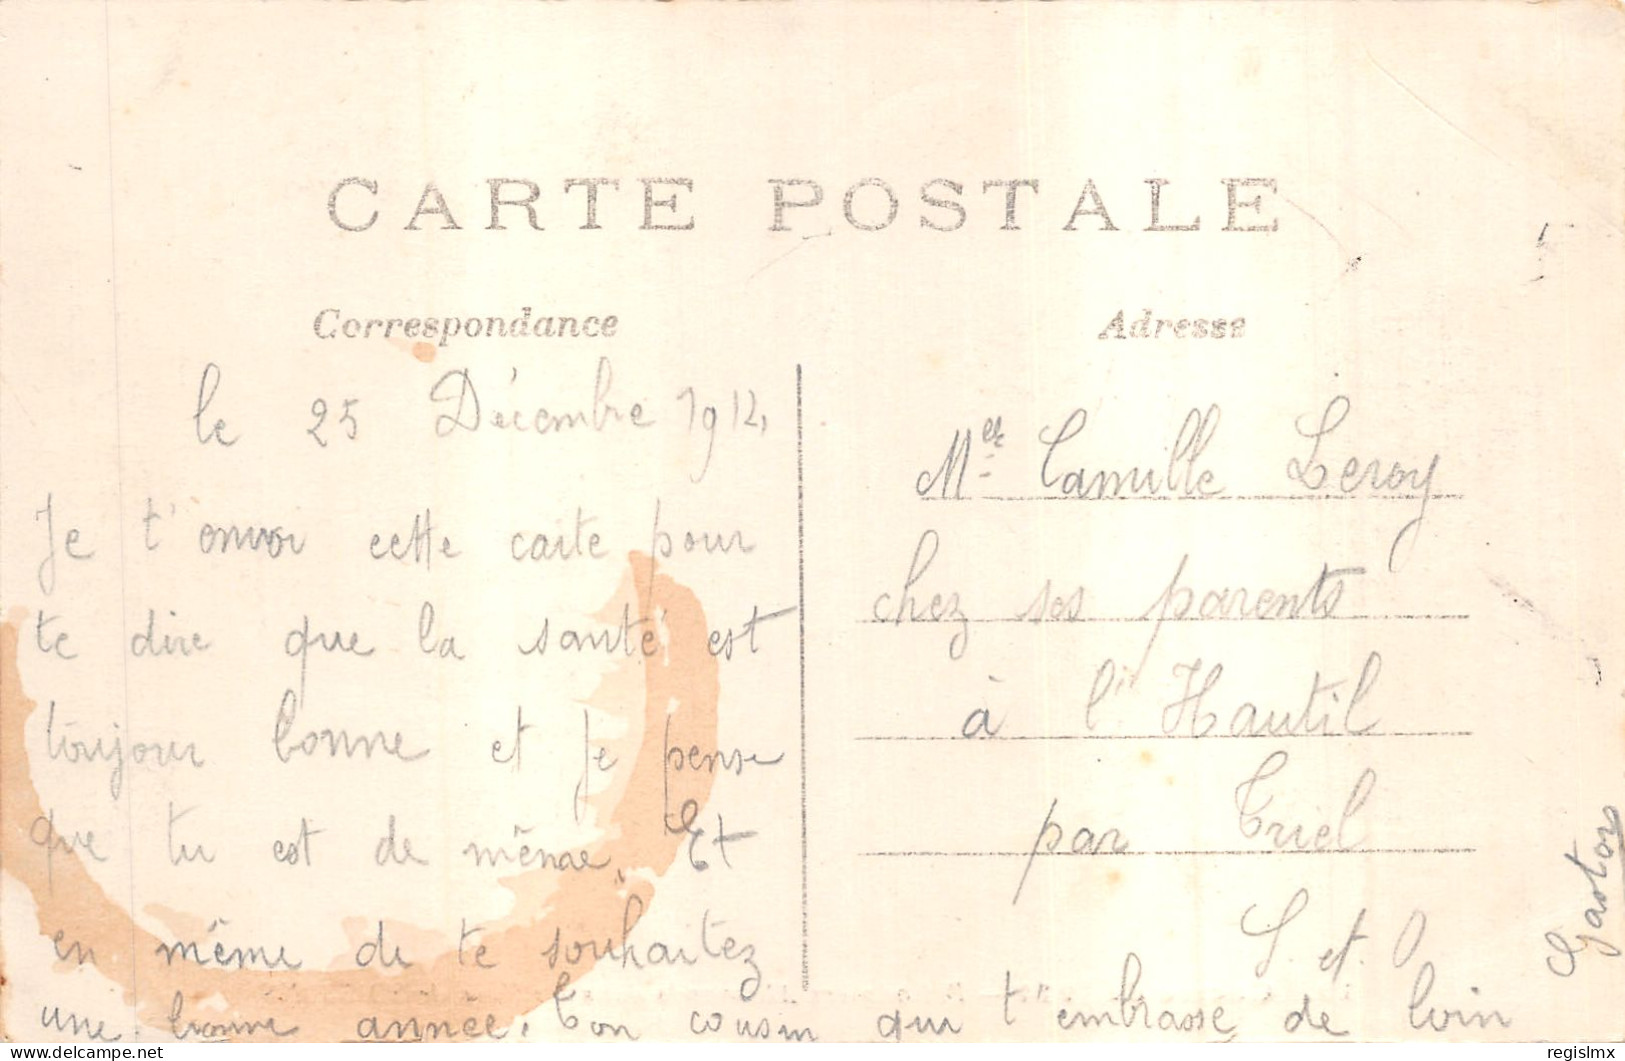 CARTE POSTALE
Correspondance
le 25 Décembre 1912,
Je t'envoi cette carte pour
te dire que la santé est
toujour bonne et je pense
que tu est de même, Et
en même de te souhaitez
une bonne année. Ton cousin qui t'embrasse de loin
Gaston
Adresse
Melle Camille Leroy
chez ses parents
à l'Hautil
par Triel
S. et. O
regislmx @ delcampe.net